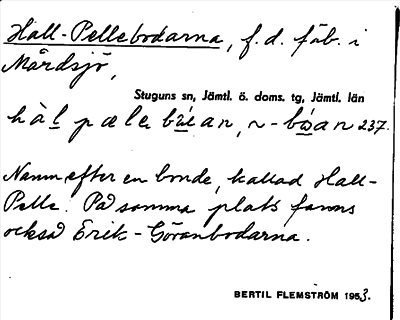 Hall-Pellebodarna, f.d. fäb. i
Mårdsjö,
Stuguns sn, Jämtl. ö. doms. tg, Jämtl. län
237.
Namn efter en bonde, kallad Hall-
Pelle. På samma plats fanns
också Erik-Göranbodarna.
BERTIL FLEMSTRÖM 1953.